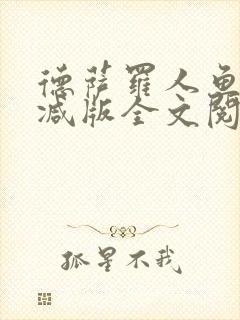 德萨罗人鱼
减版全文阅
孤星不我